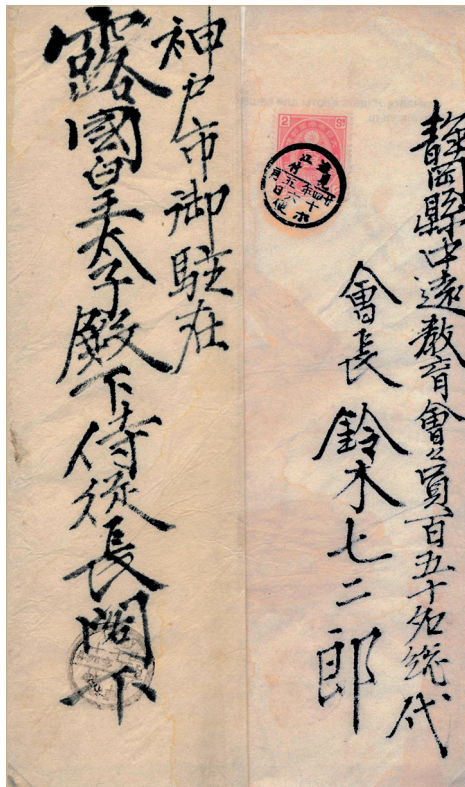 靜岡縣中遠教育會々員百五十名総代
會長 鈴木七二郎
2 Sn
神戸市御駐在
露國皇太子殿下侍從長閣下